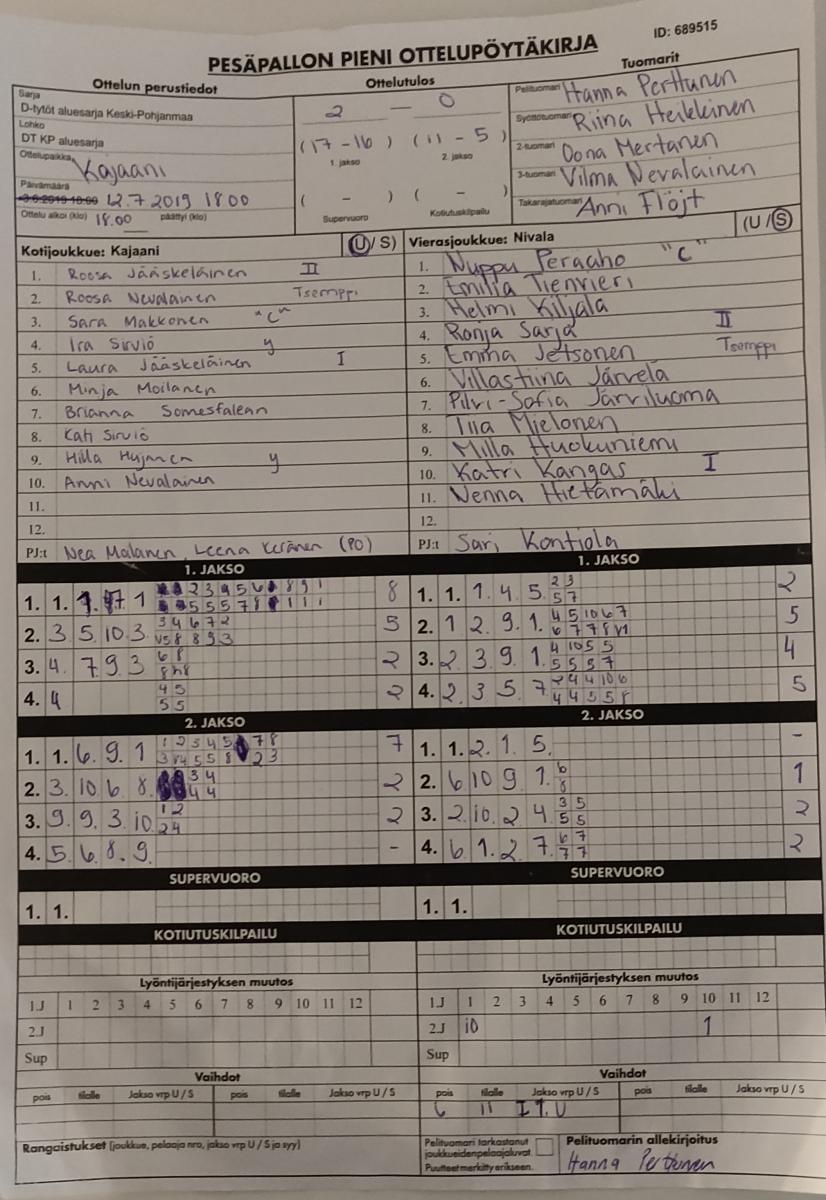 ID: 689515
PESÄPALLON PIENI OTTELUPÖYTÄKIRJA
Ottelun perustiedot
Sarja
D-tytöt aluesarja Keski-Pohjanmaa
Lohko
DT KP aluesarja
Ottelupaikka Kajaani
Päivämäärä
12.7 2019 18.00
Ottelu alkoi (klo) 18.00 päättyi (klo)
Ottelutulos
2 — 0
(17 - 16) (11 - 5)
1. jakso 2. jakso
( - ) ( - )
Supervuoro Kotiutuskilpailu
Tuomarit
Pelituomari Hanna Perttunen
Syöttötuomari Riina Heikkinen
2-tuomari Oona Mertanen
3-tuomari Vilma Nevalainen
Takarajatuomari Anni Flöjt
Kotijoukkue: Kajaani (U/S)
1. Roosa Jääskeläinen II
2. Roosa Nevalainen Tsemppi
3. Sara Makkonen "C"
4. Ira Sirviö y
5. Laura Jääskeläinen I
6. Minja Moilanen
7. Brianna Somesfalean
8. Kati Sirviö
9. Hilla Hujanen y
10. Anni Nevalainen
11.
12.
PJ:t Nea Malanen, Leena Keränen (PO)
Vierasjoukkue: Nivala (U/S)
1. Nuppu Peraaho "C"
2. Emilia Tienvieri
3. Helmi Kiljala
4. Ronja Sarja II
5. Emma Jetsonen Tsemppi
6. Villastiina Järvelä
7. Pilvi-Sofia Järviluoma
8. Tiia Mielonen
9. Milla Huokuniemi
10. Katri Kangas I
11. Nenna Hietamäki
12.
PJ:t Sari Kontiola
1. JAKSO
1. 1. 1 8
2. 3 5 10 3 3 4 6 7 2 5
8 8 9 3
3. 4. 7 9 3 6 8 2
4. 4 4 5 2
5 5
1. JAKSO
1. 1. 1 4 5 2 3 2
5 7
2. 1 2 9 1. 4 5 10 6 7 5
6 7 7 8
3. 2 3 9 1. 4 10 5 5 4
5 5 5 7
4. 2. 3 5. 7 2 4 4 10 6 5
4 4 5 5 8
2. JAKSO
1. 1. 6. 9. 1 1 2 3 4 5 7 8 7
4 5 5 8 2 3
2. 3. 10 6. 8. 3 4 2
4 4
3. 9. 9. 3 10 1 2 2
2 4
4. 5. 6. 8. 9. -
2. JAKSO
1. 1. 2. 1. 5. -
2. 6 10 9 1. 6 1
8
3. 2 10. 2 4 3 5 2
5 5
4. 6 1. 2 7. 6 7 2
7 7
SUPERVUORO
1. 1.
SUPERVUORO
1. 1.
KOTIUTUSKILPAILU
KOTIUTUSKILPAILU
Lyöntijärjestyksen muutos
1.J 1 2 3 4 5 6 7 8 9 10 11 12
2.J
Sup
Lyöntijärjestyksen muutos
1.J 1 2 3 4 5 6 7 8 9 10 11 12
2.J 10 1
Sup
Vaihdot
pois tilalle Jakso vrp U / S pois tilalle Jakso vrp U / S
Vaihdot
pois tilalle Jakso vrp U / S pois tilalle Jakso vrp U / S
6 11 I 1. U
Rangaistukset (joukkue, pelaaja nro, jakso vrp U / S ja syy)
Pelituomari tarkastanut
joukkueidenpelaajaluvat.
Puutteet merkitty erikseen.
Pelituomarin allekirjoitus
Hanna Perttunen